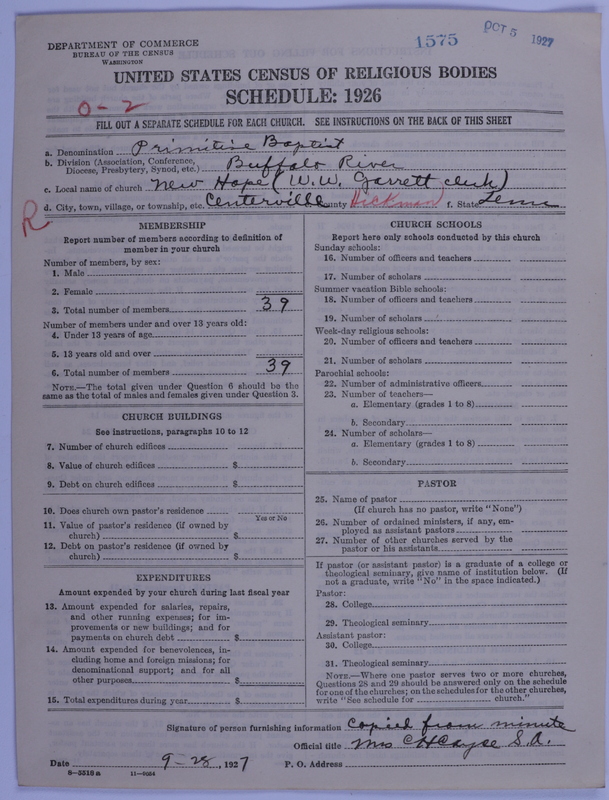 DEPARTMENT OF COMMERCE
BUREAU OF THE CENSUS
WASHINGTON
1575
OCT 5 1927
UNITED STATES CENSUS OF RELIGIOUS BODIES
SCHEDULE: 1926
0-2
FILL OUT A SEPARATE SCHEDULE FOR EACH CHURCH. SEE INSTRUCTIONS ON THE BACK OF THIS SHEET
a. Denomination Primitive Baptist
b. Division (Association, Conference, Diocese, Presbytery, Synod, etc.) Buffalo River
c. Local name of church New Hope (W.W. Garrett clerk)
d. City, town, village, or township, etc. Centerville County Hickman f. State Tenn
R
MEMBERSHIP
Report number of members according to definition of
member in your church
Number of members, by sex:
1. Male
2. Female
3. Total number of members 39
Number of members under and over 13 years old:
4. Under 13 years of age
5. 13 years old and over
6. Total number of members 39
NOTE.—The total given under Question 6 should be the
same as the total of males and females given under Question 3.
CHURCH BUILDINGS
See instructions, paragraphs 10 to 12
7. Number of church edifices
8. Value of church edifices $
9. Debt on church edifices $
10. Does church own pastor's residence
Yes or No
11. Value of pastor's residence (if owned by
church) $
12. Debt on pastor's residence (if owned by
church) $
EXPENDITURES
Amount expended by church during last fiscal year
13. Amount expended for salaries, repairs,
and other running expenses; for im-
provements or new buildings; and for
payments on church debt $
14. Amount expended for benevolences, in-
cluding home and foreign missions; for
denominational support; and for all
other purposes $
15. Total expenditures during year $
CHURCH SCHOOLS
Report here only schools conducted by this church
Sunday schools:
16. Number of officers and teachers
17. Number of scholars
Summer vacation Bible schools:
18. Number of officers and teachers
19. Number of scholars
Week-day religious schools:
20. Number of officers and teachers
21. Number of scholars
Parochial schools:
22. Number of administrative officers
23. Number of teachers—
a. Elementary (grades 1 to 8)
b. Secondary
24. Number of scholars—
a. Elementary (grades 1 to 8)
b. Secondary
PASTOR
25. Name of pastor
(If church has no pastor, write "None")
26. Number of ordained ministers, if any, em-
ployed as assistant pastors
27. Number of other churches served by the
pastor or his assistants
If pastor (or assistant pastor) is a graduate of a college or
theological seminary, give name of institution below. (If
not a graduate, write "No" in the space indicated.)
Pastor:
28. College
29. Theological seminary
Assistant pastor:
30. College
31. Theological seminary
NOTE.—Where one pastor serves two or more churches,
Questions 28 and 29 should be answered only on the schedule
for one of the churches; on the schedules for the other churches,
write "See schedule for church."
Signature of person furnishing information Copied from minute
Official title Mrs C H Cayse S.A.
Date 9-28, 1927 P. O. Address
8-5518 a 11-9054